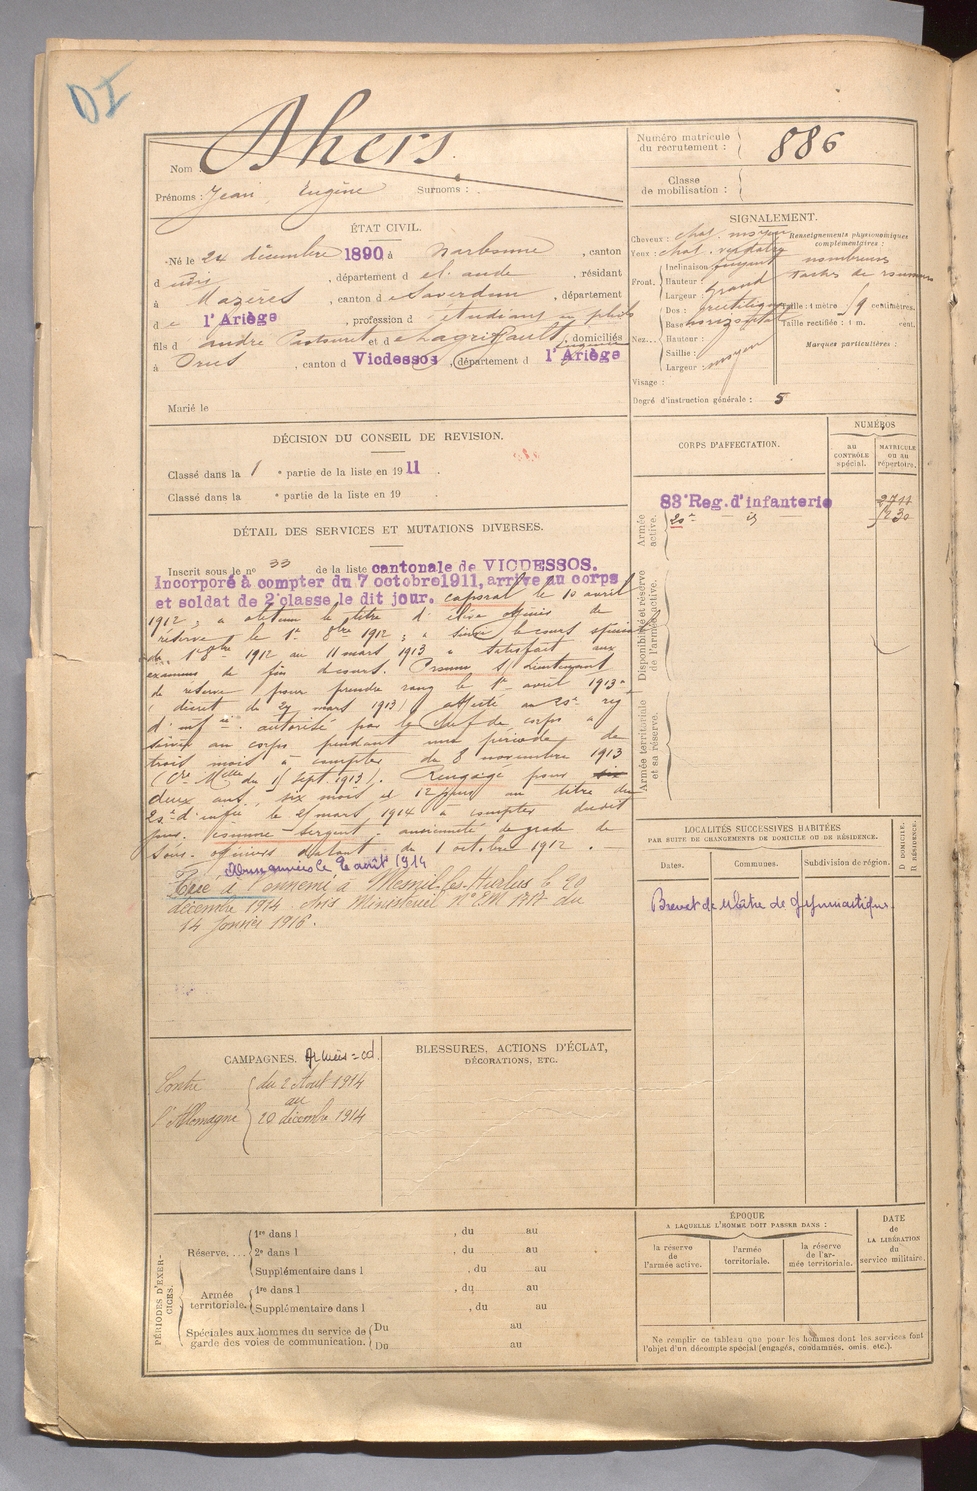 DI
Nom Ahers.
Prénoms : Jean, Eugène Surnoms :
Numéro matricule
du recrutement : 886
Classe
de mobilisation :
ÉTAT CIVIL.
Né le 24 décembre 1890 à Narbonne, canton
d udis, département d el'aude, résidant
à Mazères, canton de Saverdun, département
de l'Ariège, profession d étudiant en
fils d André Pastouret et d e , domiciliés
à Orus, canton d Vicdessos, département d l'Ariège
Marié le
SIGNALEMENT.
Cheveux : chat. moyen
Yeux : chat. verdâtre
Front. Inclinaison : fuyant
Hauteur : grand
Largeur :
Nez... Dos : rectiligne
Base : horizontal
Hauteur :
Saillie :
Largeur : moyen
Visage :
Degré d'instruction générale : 5
Renseignements physionomiques
complémentaires :
nombreuses
taches de rousseur
Taille : 1 mètre 59 centimètres.
Taille rectifiée : 1 m. cent.
Marques particulières :
DÉCISION DU CONSEIL DE REVISION.
Classé dans la 1 e partie de la liste en 1911.
Classé dans la e partie de la liste en 19 .
CORPS D'AFFECTATION.
NUMÉROS
AU
CONTRÔLE
spécial.
MATRICULE
OU AU
répertoire.
Armée
active.
83e Reg. d'infanterie 2711
20e id 1230
Disponibilité et réserve
de l'armée active.
Armée territoriale
et sa réserve.
DÉTAIL DES SERVICES ET MUTATIONS DIVERSES.
Inscrit sous le no 33 de la liste cantonale de VICDESSOS.
Incorporé à compter du 7 octobre 1911, arrivé au corps
et soldat de 2e classe le dit jour. caporal le 10 avril
1912 ; a obtenu le titre d'élève officier de
réserve le 1er 8bre 1912 ; a suivi le cours spécial
du 1er 8bre 1912 au 11 mars 1913 a satisfait aux
examens de fin de cours. Promu s/ Lieutenant
de réserve pour prendre rang le 1er avril 1913
(décret du 29 mars 1913) affecté au 20e rég
d'infie. autorisé par le Chef de corps à
servir au corps pendant une période de
trois mois à compter du 8 novembre 1913
(Cre Melle du 15 sept. 1913). Rengagé pour six
deux ans, six mois et 12 jours au titre du
20e d'infie le 21 mars 1914 à compter dudit
jour. Nommé sergent, ancienneté de grade de
sous-officier datant du 1 octobre 1912.
Aux armées le 2 août 1914
Tué à l'ennemi à Mesnil-les-Hurlus le 20
décembre 1914 Avis Ministériel No EM 1717 du
14 Janvier 1916.
LOCALITÉS SUCCESSIVES HABITÉES
PAR SUITE DE CHANGEMENTS DE DOMICILE OU DE RÉSIDENCE.
Dates.
Communes.
Subdivision de région.
D. DOMICILE.
R. RÉSIDENCE.
Brevet de Maître de gymnastique.
CAMPAGNES. Armées = cd.
Contre
l'Allemagne
du 2 Août 1914
au
20 décembre 1914
BLESSURES, ACTIONS D'ÉCLAT,
DÉCORATIONS, ETC.
PÉRIODES D'EXER-
CICES.
Réserve.... 1re dans l , du au
2e dans l , du au
Supplémentaire dans l , du au
Armée
territoriale. 1re dans l , du au
Supplémentaire dans l , du au
Spéciales aux hommes du service de
garde des voies de communication.
Du au
Du au
ÉPOQUE
À LAQUELLE L'HOMME DOIT PASSER DANS :
la réserve
de
l'armée active.
l'armée
territoriale.
la réserve
de l'ar-
mée territoriale.
DATE
de
LA LIBÉRATION
du
service militaire.
Ne remplir ce tableau que pour les hommes dont les services font
l'objet d'un décompte spécial (engagés, condamnés, omis, etc.).